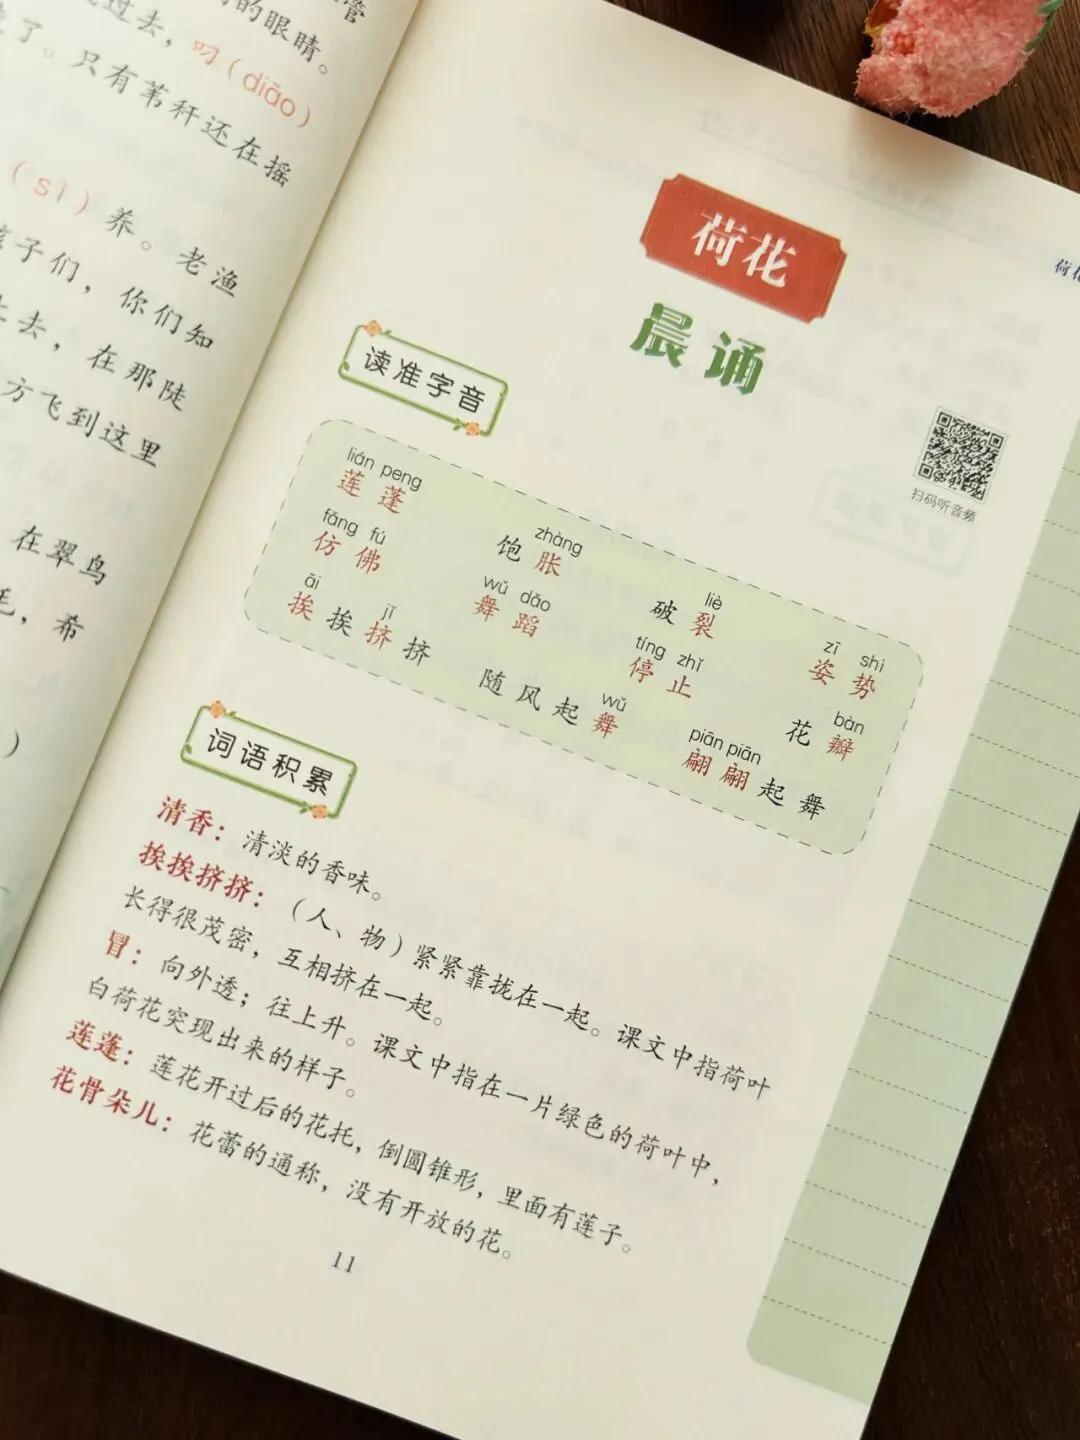 管
过去，叼（diāo）
的眼睛。
了。只有苇秆还在摇
（sì）养。老渔
孩子们，你们知
去，在那陡
方飞到这里
在翠鸟
，希
）
荷花
荷花
晨诵
读准字音
扫码听音频
lián peng
莲蓬
zhàng
饱胀
liè
破裂
zī shì
姿势
fǎng fú
仿佛
wǔ dǎo
舞蹈
tíng zhǐ
停止
bàn
花瓣
āi jǐ
挨挨挤挤
wǔ
随风起舞
piān piān
翩翩起舞
词语积累
清香：清淡的香味。
挨挨挤挤：（人、物）紧紧靠拢在一起。课文中指荷叶
长得很茂密，互相挤在一起。
冒：向外透；往上升。课文中指在一片绿色的荷叶中，
白荷花突现出来的样子。
莲蓬：莲花开过后的花托，倒圆锥形，里面有莲子。
花骨朵儿：花蕾的通称，没有开放的花。
11